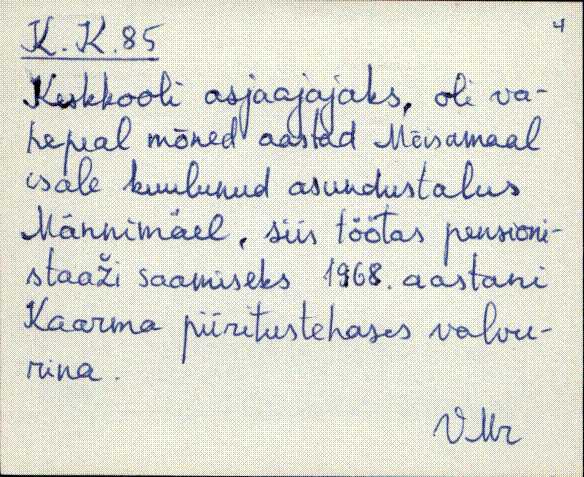 4
K. K. 85
Keskkooli asjaajajaks, oli va-
hepeal mõned aastad Mõisamaal
isale kuulunud asundustalus
Männimäel, siis töötas pensioni-
staaži saamiseks 1968. aastani
Kaarma piiritustehases valvu-
rina.